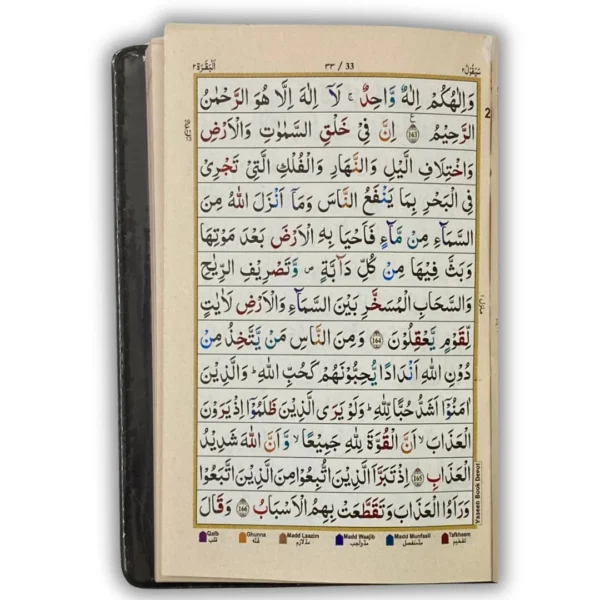 اَلْبَقَرَة ٢
٣٣ / 33
سَيَقُوْلُ ٢
وَاِلٰهُكُمْ اِلٰهٌ وَّاحِدٌ ۚ لَآ اِلٰهَ اِلَّا هُوَ الرَّحْمٰنُ
الرَّحِيْمُ ﴿163﴾ اِنَّ فِيْ خَلْقِ السَّمٰوٰتِ وَالْاَرْضِ
وَاخْتِلَافِ الَّيْلِ وَالنَّهَارِ وَالْفُلْكِ الَّتِيْ تَجْرِيْ
فِي الْبَحْرِ بِمَا يَنْفَعُ النَّاسَ وَمَآ اَنْزَلَ اللّٰهُ مِنَ
السَّمَآءِ مِنْ مَّآءٍ فَاَحْيَا بِهِ الْاَرْضَ بَعْدَ مَوْتِهَا
وَبَثَّ فِيْهَا مِنْ كُلِّ دَآبَّةٍ ۪ وَّتَصْرِيْفِ الرِّيٰحِ
وَالسَّحَابِ الْمُسَخَّرِ بَيْنَ السَّمَآءِ وَالْاَرْضِ لَاٰيٰتٍ
لِّقَوْمٍ يَّعْقِلُوْنَ ﴿164﴾ وَمِنَ النَّاسِ مَنْ يَّتَّخِذُ مِنْ
دُوْنِ اللّٰهِ اَنْدَادًا يُّحِبُّوْنَهُمْ كَحُبِّ اللّٰهِ ؕ وَالَّذِيْنَ
اٰمَنُوْٓا اَشَدُّ حُبًّا لِّلّٰهِ ؕ وَلَوْ يَرَى الَّذِيْنَ ظَلَمُوْٓا اِذْ يَرَوْنَ
الْعَذَابَ ۙ اَنَّ الْقُوَّةَ لِلّٰهِ جَمِيْعًا ۙ وَّاَنَّ اللّٰهَ شَدِيْدُ
الْعَذَابِ ﴿165﴾ اِذْ تَبَرَّاَ الَّذِيْنَ اتُّبِعُوْا مِنَ الَّذِيْنَ اتَّبَعُوْا
وَرَاَوُا الْعَذَابَ وَتَقَطَّعَتْ بِهِمُ الْاَسْبَابُ ﴿166﴾ وَقَالَ
Yaseen Book Depot
Qalb Ghunna Madd Laazim Madd Waajib Madd Munfasil Tafkheem
قلب غنّه مدّ لازم مدّ واجب مدّ منفصل تفخيم